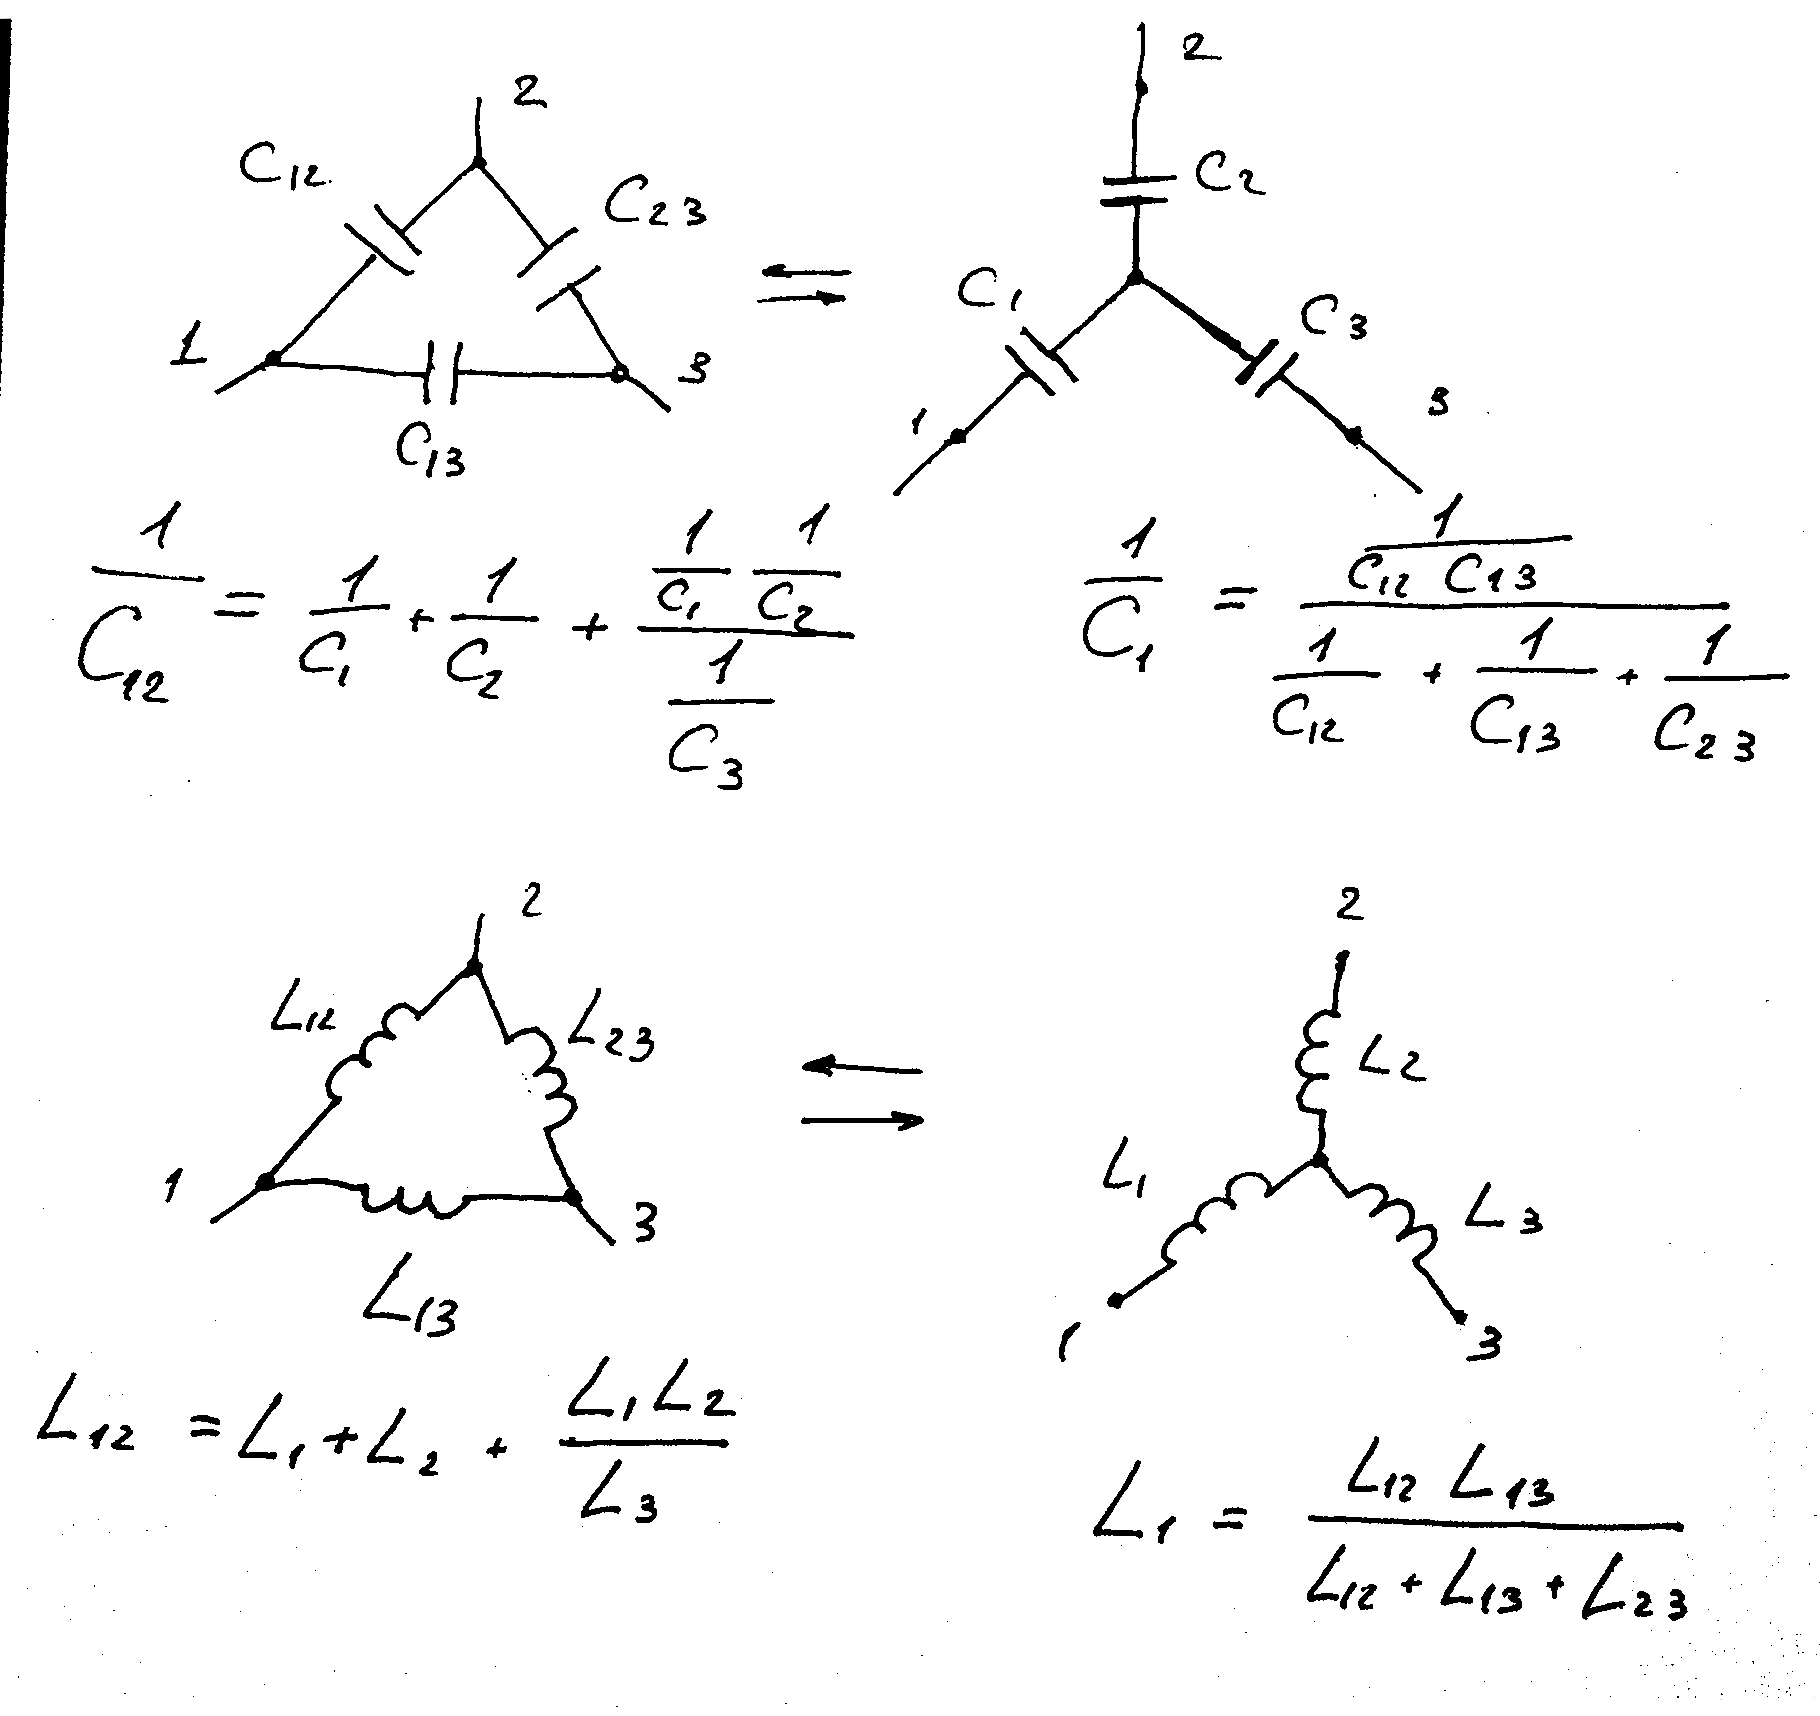 2
C12
C23
1
3
C13
2
C2
C1
C3
1
3
1/C12 = 1/C1 + 1/C2 + (1/C1 1/C2)/(1/C3)
1/C1 = (1/(C12 C13))/(1/C12 + 1/C13 + 1/C23)
2
L12
L23
1
3
L13
2
L2
L1
L3
1
3
L12 = L1 + L2 + (L1 L2)/L3
L1 = (L12 L13)/(L12 + L13 + L23)